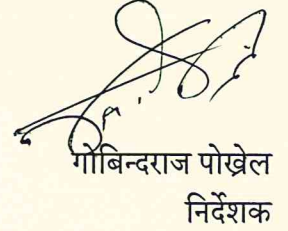 गोबिन्दराज पोखेल
निर्देशक